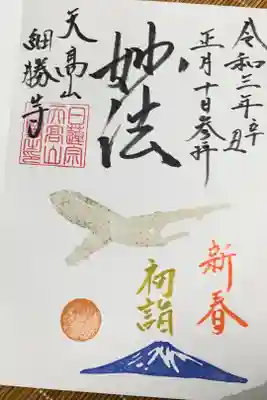 令和三年辛丑
正月十日参拝
妙法
天高山
細勝寺
日蓮宗
天高山
新春
初詣